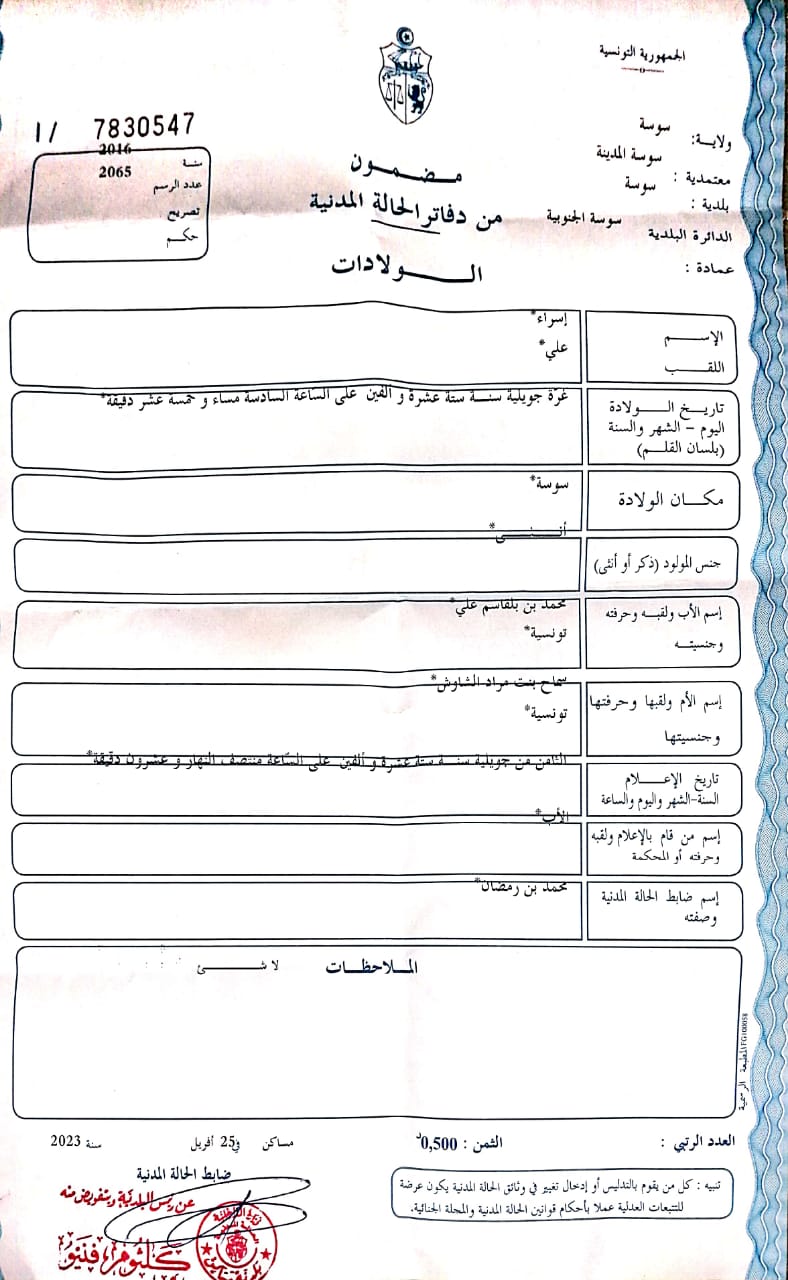 الجمهورية التونسية
ولاية: سوسة
معتمدية : سوسة المدينة
بلدية : سوسة
الدائرة البلدية سوسة الجنوبية
عمادة :
I/ 7830547
سنة 2016
عدد الرسم 2065
تصريح
حكم
مضمون
من دفاتر الحالة المدنية
الولادات
الإسم إسراء*
اللقب علي*
تاريخ الولادة
اليوم – الشهر والسنة
(بلسان القلم)
غرّة جويلية سنة ستة عشرة و ألفين على الساعة السادسة مساء و خمسة عشر دقيقة*
مكان الولادة سوسة*
جنس المولود (ذكر أو أنثى) أنثى*
إسم الأب ولقبه وحرفته محمد بن بلقاسم علي*
وجنسيته تونسية*
إسم الأم ولقبها وحرفتها سماح بنت مراد الشاوش*
وجنسيتها تونسية*
تاريخ الإعلام
السنة-الشهر واليوم والساعة
الثامن من جويلية سنة ستة عشرة و ألفين على الساعة منتصف النهار و عشرون دقيقة*
إسم من قام بالإعلام ولقبه
وحرفته أو المحكمة
الأب*
إسم ضابط الحالة المدنية
وصفته
محمد بن رمضان*
الملاحظات لا شئ
المطبعة الرسمية IFG100058
العدد الرتبي : الثمن : 0,500د
مساكن في 25 أفريل سنة 2023
تنبيه : كل من يقوم بالتدليس أو إدخال تغيير في وثائق الحالة المدنية يكون عرضة
للتتبعات العدلية عملا بأحكام قوانين الحالة المدنية والمجلة الجنائية.
ضابط الحالة المدنية
عن رئيس البلدية وبتفويض منه